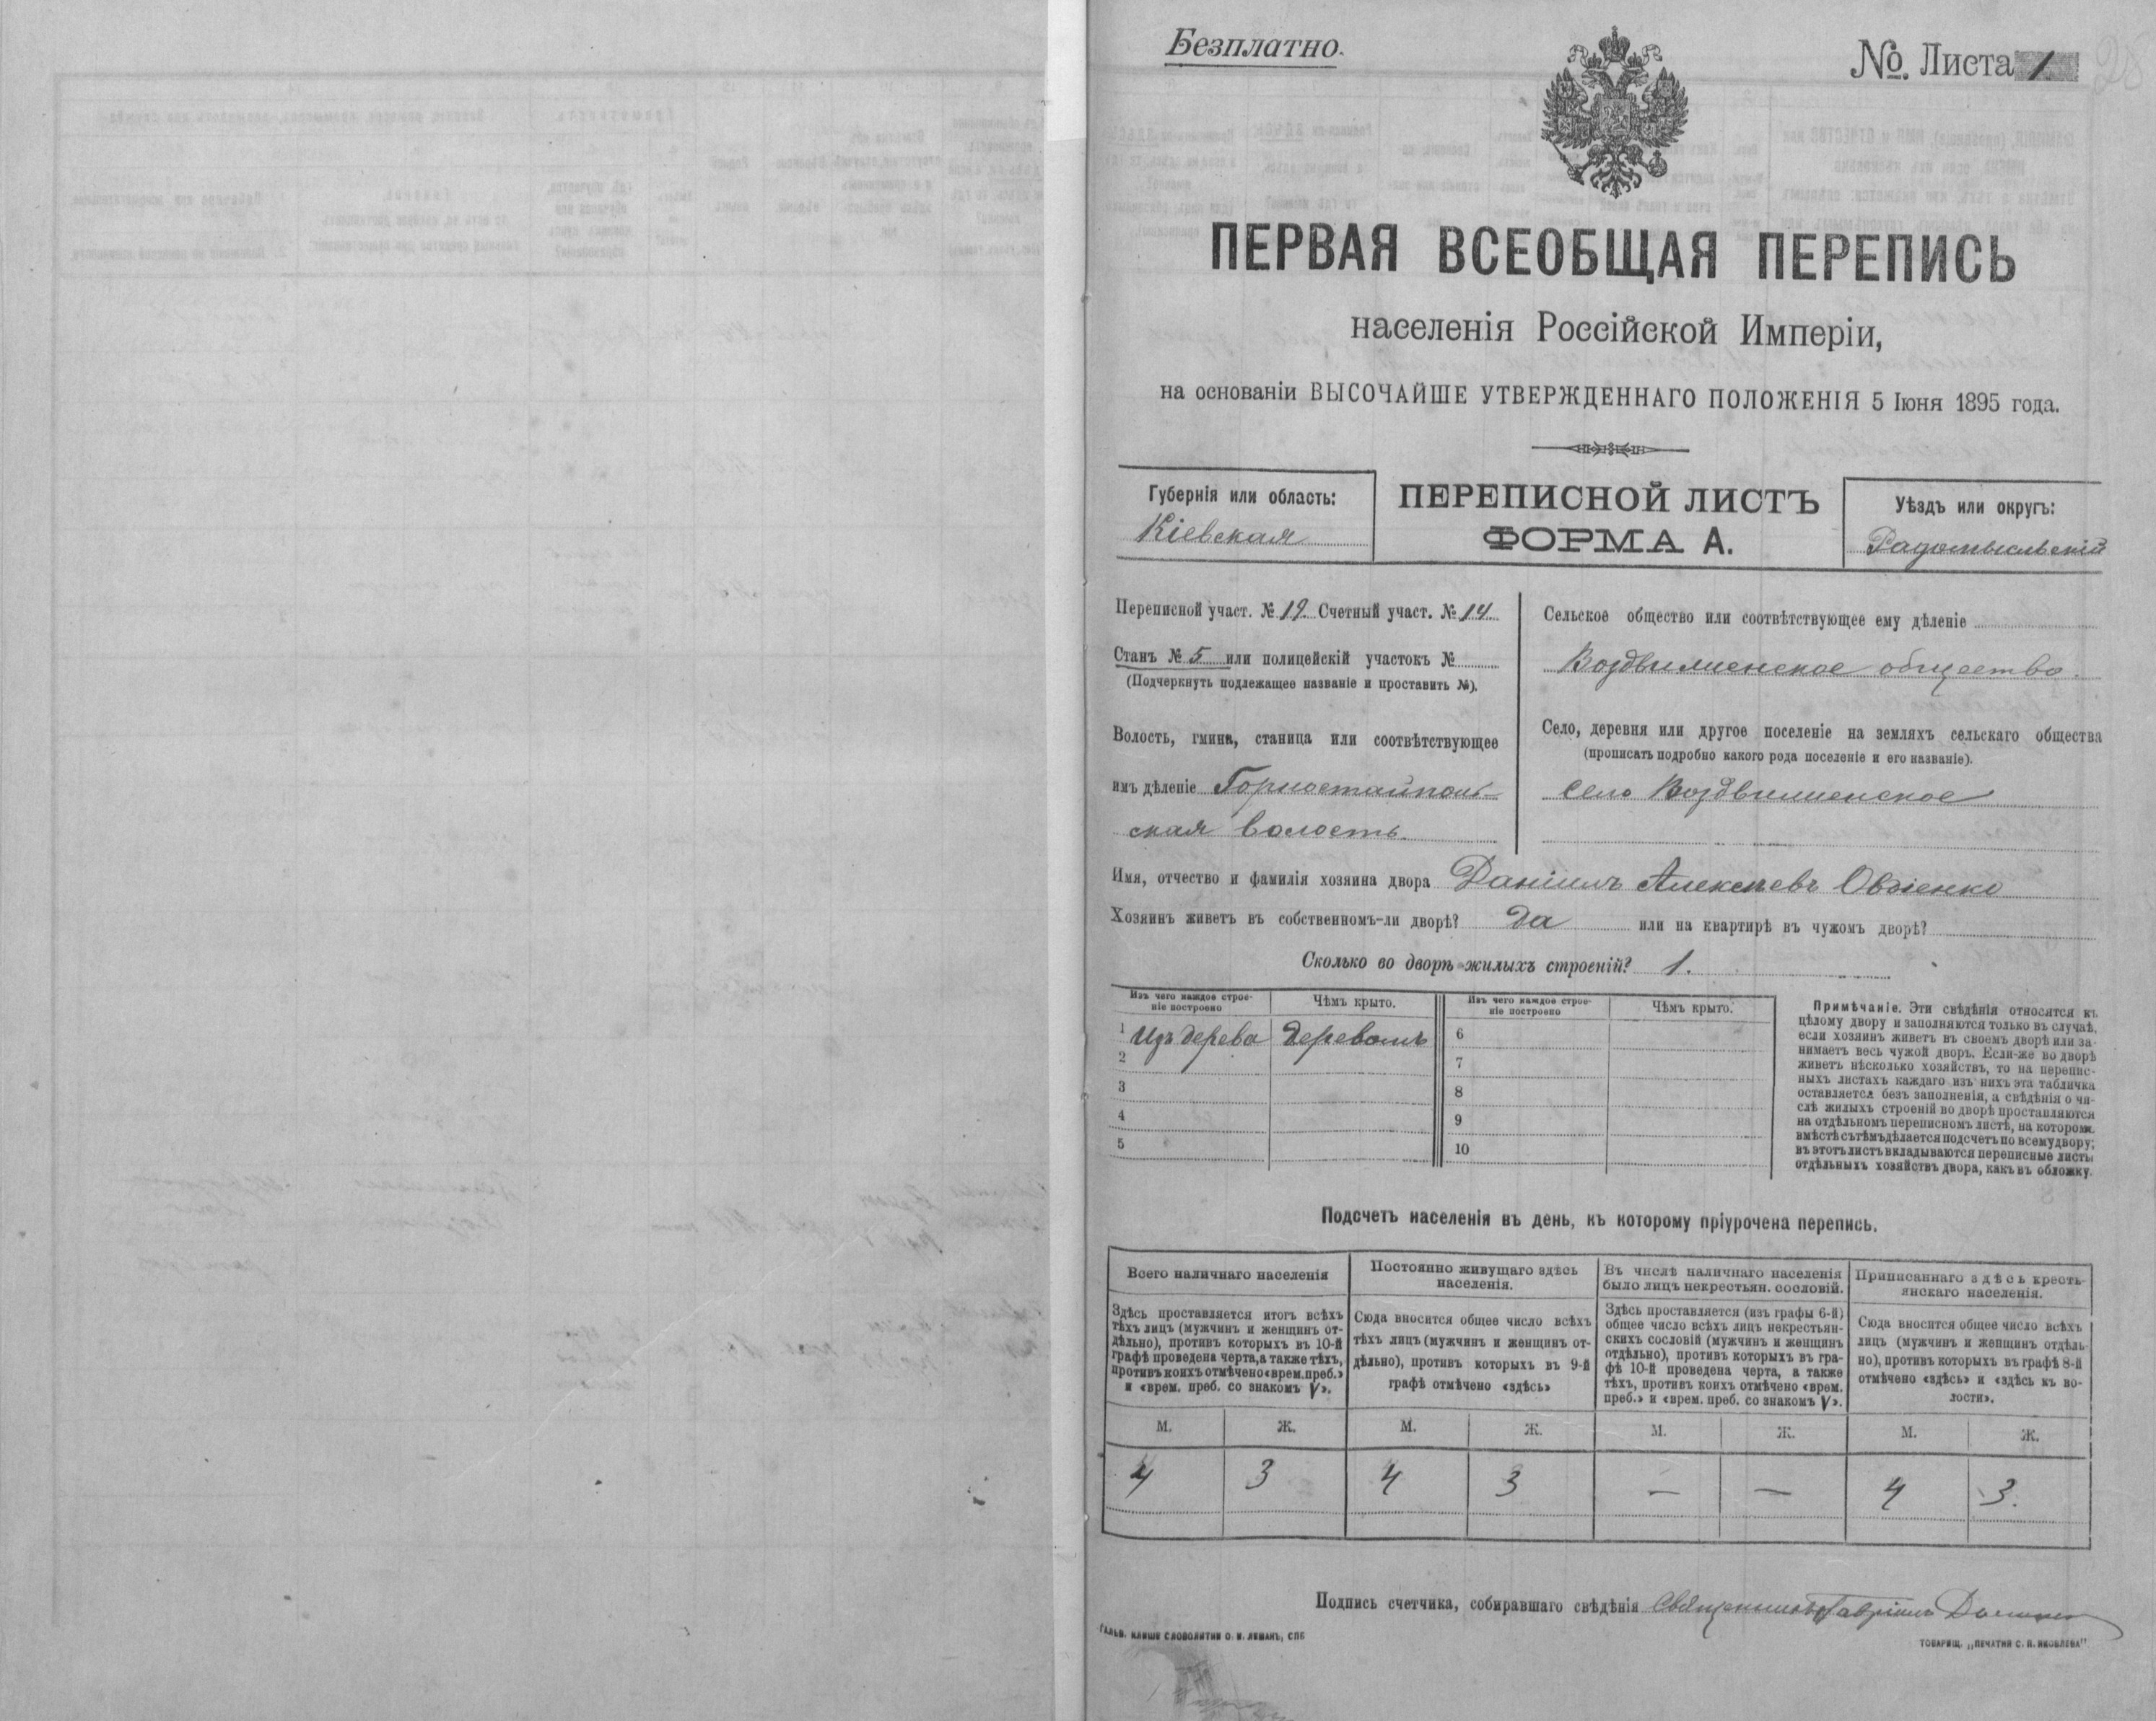 Безплатно.
№. Листа 1
28
ПЕРВАЯ ВСЕОБЩАЯ ПЕРЕПИСЬ
населенія Россійской Имперіи,
на основаніи ВЫСОЧАЙШЕ УТВЕРЖДЕННАГО ПОЛОЖЕНІЯ 5 Іюня 1895 года.
Губернія или область:
Кіевская
ПЕРЕПИСНОЙ ЛИСТЪ
ФОРМА А.
Уѣздъ или округъ:
Радомысльскій
Переписной участ. № 19. Счетный участ. № 14.
Станъ № 5 или полицейскій участокъ №
(Подчеркнуть подлежащее названіе и проставить №).
Волость, гмина, станица или соотвѣтствующее
имъ дѣленіе Горностайполь-
ская волость.
Сельское общество или соотвѣтствующее ему дѣленіе
Воздвиженское общество.
Село, деревня или другое поселеніе на земляхъ сельскаго общества
(прописать подробно какого рода поселеніе и его названіе).
село Воздвиженское
Имя, отчество и фамилія хозяина двора Даніилъ Алексѣевъ Овсіенко
Хозяинъ живетъ въ собственномъ-ли дворѣ? да или на квартирѣ въ чужомъ дворѣ?
Сколько во дворѣ жилыхъ строеній? 1.
Изъ чего каждое строе-
ніе построено
Чѣмъ крыто.
Изъ чего каждое строе-
ніе построено
Чѣмъ крыто.
1 Изъ дерева деревомъ 6
2 7
3 8
4 9
5 10
Примѣчаніе. Эти свѣдѣнія относятся къ
цѣлому двору и заполняются только въ случаѣ,
если хозяинъ живетъ въ своемъ дворѣ или за-
нимаетъ весь чужой дворъ. Если-же во дворѣ
живетъ нѣсколько хозяйствъ, то на перепис-
ныхъ листахъ каждаго изъ нихъ эта табличка
оставляется безъ заполненія, а свѣдѣнія о чи-
слѣ жилыхъ строеній во дворѣ проставляются
на отдѣльномъ переписномъ листѣ, на которомъ
вмѣстѣ съ тѣмъ дѣлается подсчетъ по всему двору;
въ этотъ листъ вкладываются переписные листы
отдѣльныхъ хозяйствъ двора, какъ въ обложку.
Подсчетъ населенія въ день, къ которому пріурочена перепись.
Всего наличнаго населенія
Здѣсь проставляется итогъ всѣхъ
тѣхъ лицъ (мужчинъ и женщинъ от-
дѣльно), противъ которыхъ въ 10-й
графѣ проведена черта, а также тѣхъ,
противъ коихъ отмѣчено «врем. преб.»
и «врем. преб. со знакомъ V».
Постоянно живущаго здѣсь
населенія.
Сюда вносится общее число всѣхъ
тѣхъ лицъ (мужчинъ и женщинъ от-
дѣльно), противъ которыхъ въ 9-й
графѣ отмѣчено «здѣсь»
Въ числѣ наличнаго населенія
было лицъ некрестьян. сословій.
Здѣсь проставляется (изъ графы 6-й)
общее число всѣхъ лицъ некрестьян-
скихъ сословій (мужчинъ и женщинъ
отдѣльно), противъ которыхъ въ гра-
фѣ 10-й проведена черта, а также
тѣхъ, противъ коихъ отмѣчено «врем.
преб.» и «врем. преб. со знакомъ V».
Приписаннаго здѣсь кресть-
янскаго населенія.
Сюда вносится общее число всѣхъ
лицъ (мужчинъ и женщинъ отдѣль-
но), противъ которыхъ въ графѣ 8-й
отмѣчено «здѣсь» и «здѣсь къ во-
лости».
М. Ж. М. Ж. М. Ж. М. Ж.
4 3 4 3 — — 4 3.
Подпись счетчика, собиравшаго свѣдѣнія Священникъ Гавріилъ
ГАЛЬВ. КЛИШЕ СЛОВОЛИТНИ О. И. ЛЕМАНЪ, СПБ
ТОВАРИЩ. „ПЕЧАТНЯ С. П. ЯКОВЛЕВА"